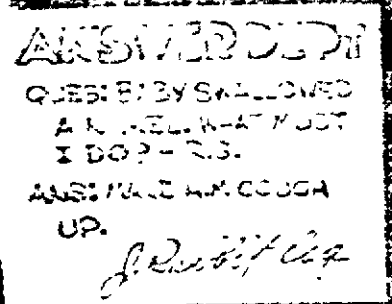 ANSWER DEPT
QUES: BABY SWALLOWED
A NICKEL. WHAT MUST
I DO? - R.S.
ANS: MAKE HIM COUGH
UP.